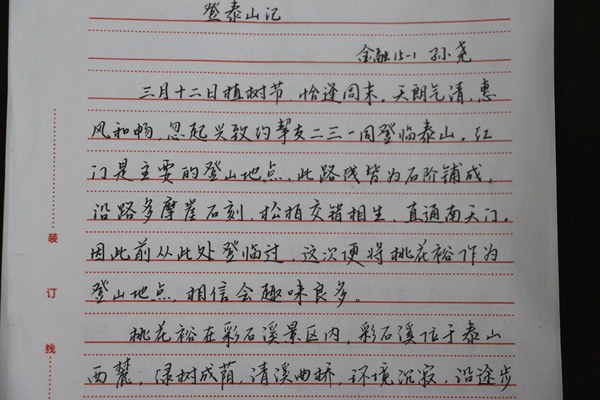 登泰山记
金融15-1 孙尧
三月十二日植树节，恰逢周末。天朗气清，惠
风和畅，忽起兴致约挚友二三一同登临泰山。红
门是主要的登山地点，此路线皆为石阶铺成，
沿路多摩崖石刻，松柏交错相生，直通南天门。
因此前从此处登临过，这次便将桃花裕作为
登山地点，相信会趣味良多。
桃花裕在彩石溪景区内，彩石溪位于泰山
西麓，绿树成荫，清溪曲桥，环境沉寂，沿途步
装
订
线